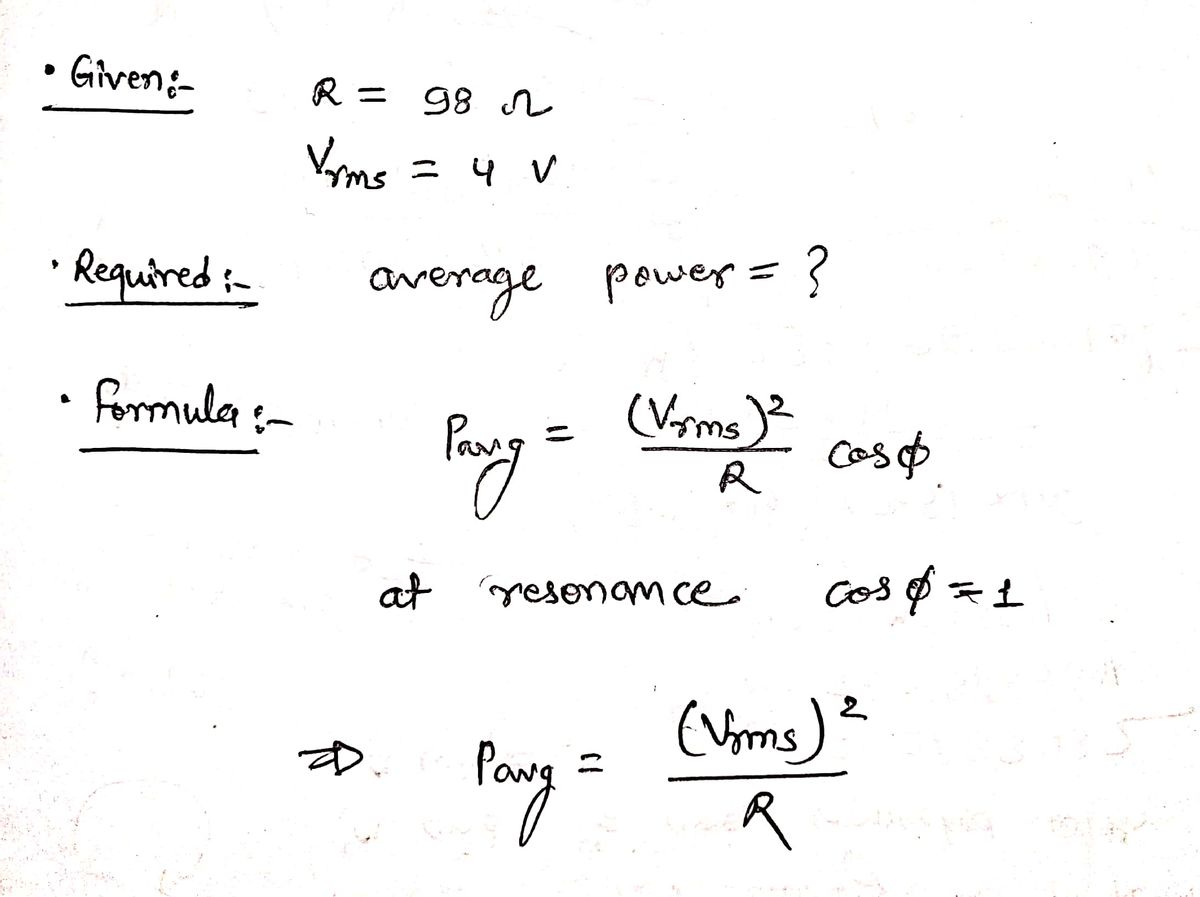 • Given:-
R = 98 Ω
Vrms = 4 V
• Required :-
average power = ?
• Formula :-
Pavg = (Vrms)² / R cosφ
at resonance cos φ = 1
⇒ Pavg = (Vrms)² / R